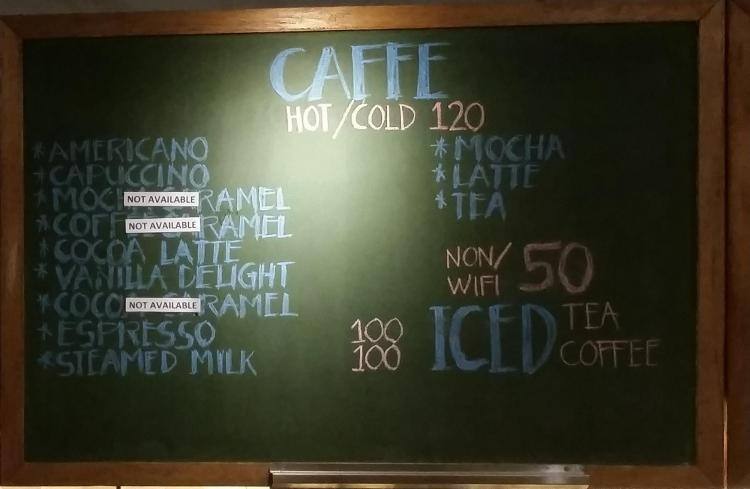 CAFFE
HOT/COLD 120
*AMERICANO
*CAPUCCINO
*MOCHA CARAMEL
NOT AVAILABLE
*COFFEE CARAMEL
NOT AVAILABLE
*COCOA LATTE
*VANILLA DELIGHT
*COCOA CARAMEL
NOT AVAILABLE
*ESPRESSO 100
*STEAMED MILK 100
*MOCHA
*LATTE
*TEA
NON/
WIFI 50
ICED TEA
COFFEE